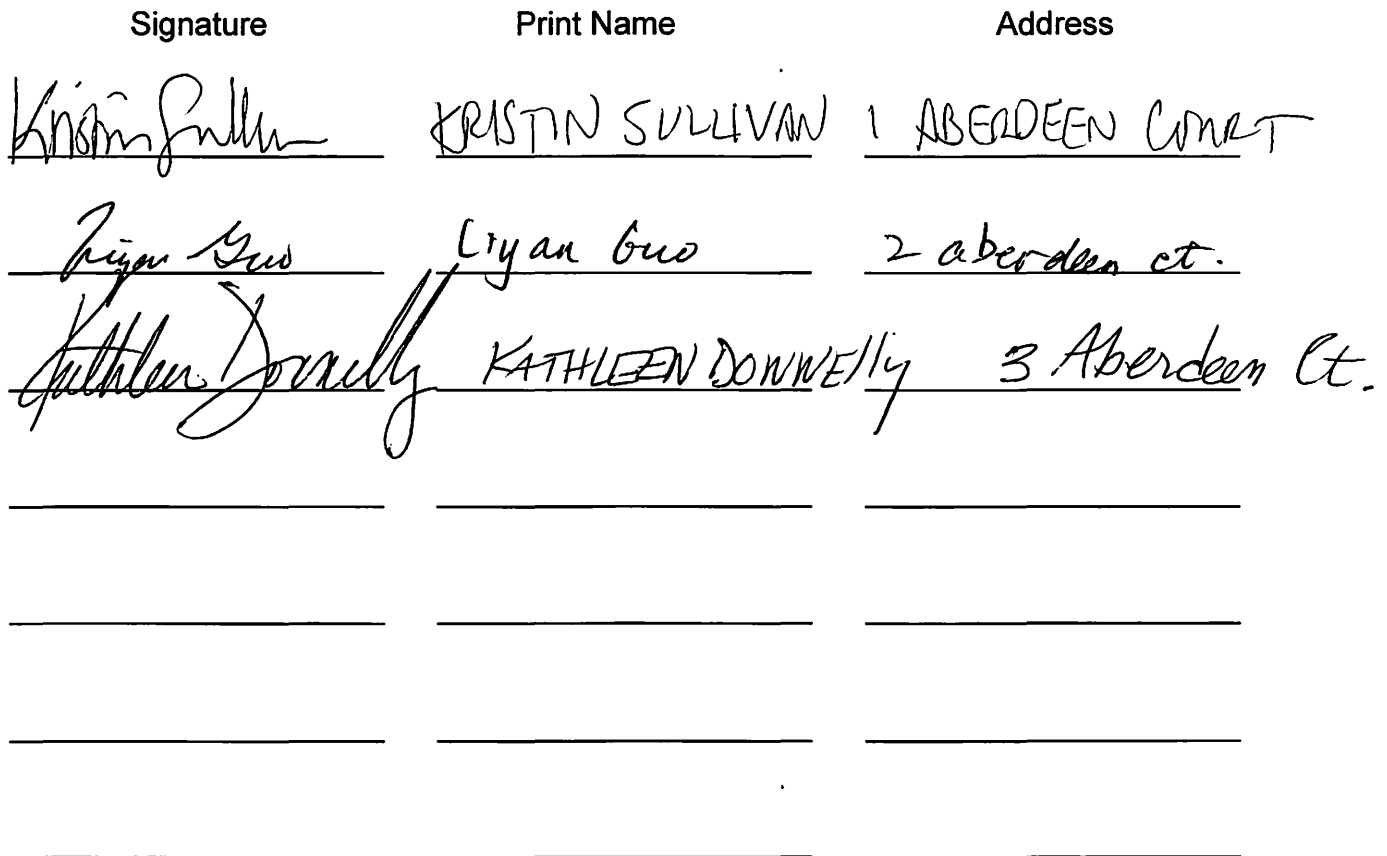 Signature Print Name Address
Kristin Sullivan KRISTIN SULLIVAN 1 ABERDEEN COURT
Liyan Guo Liyan Guo 2 aberdeen ct.
Kathleen Donnelly KATHLEEN DONNElly 3 Aberdeen Ct.